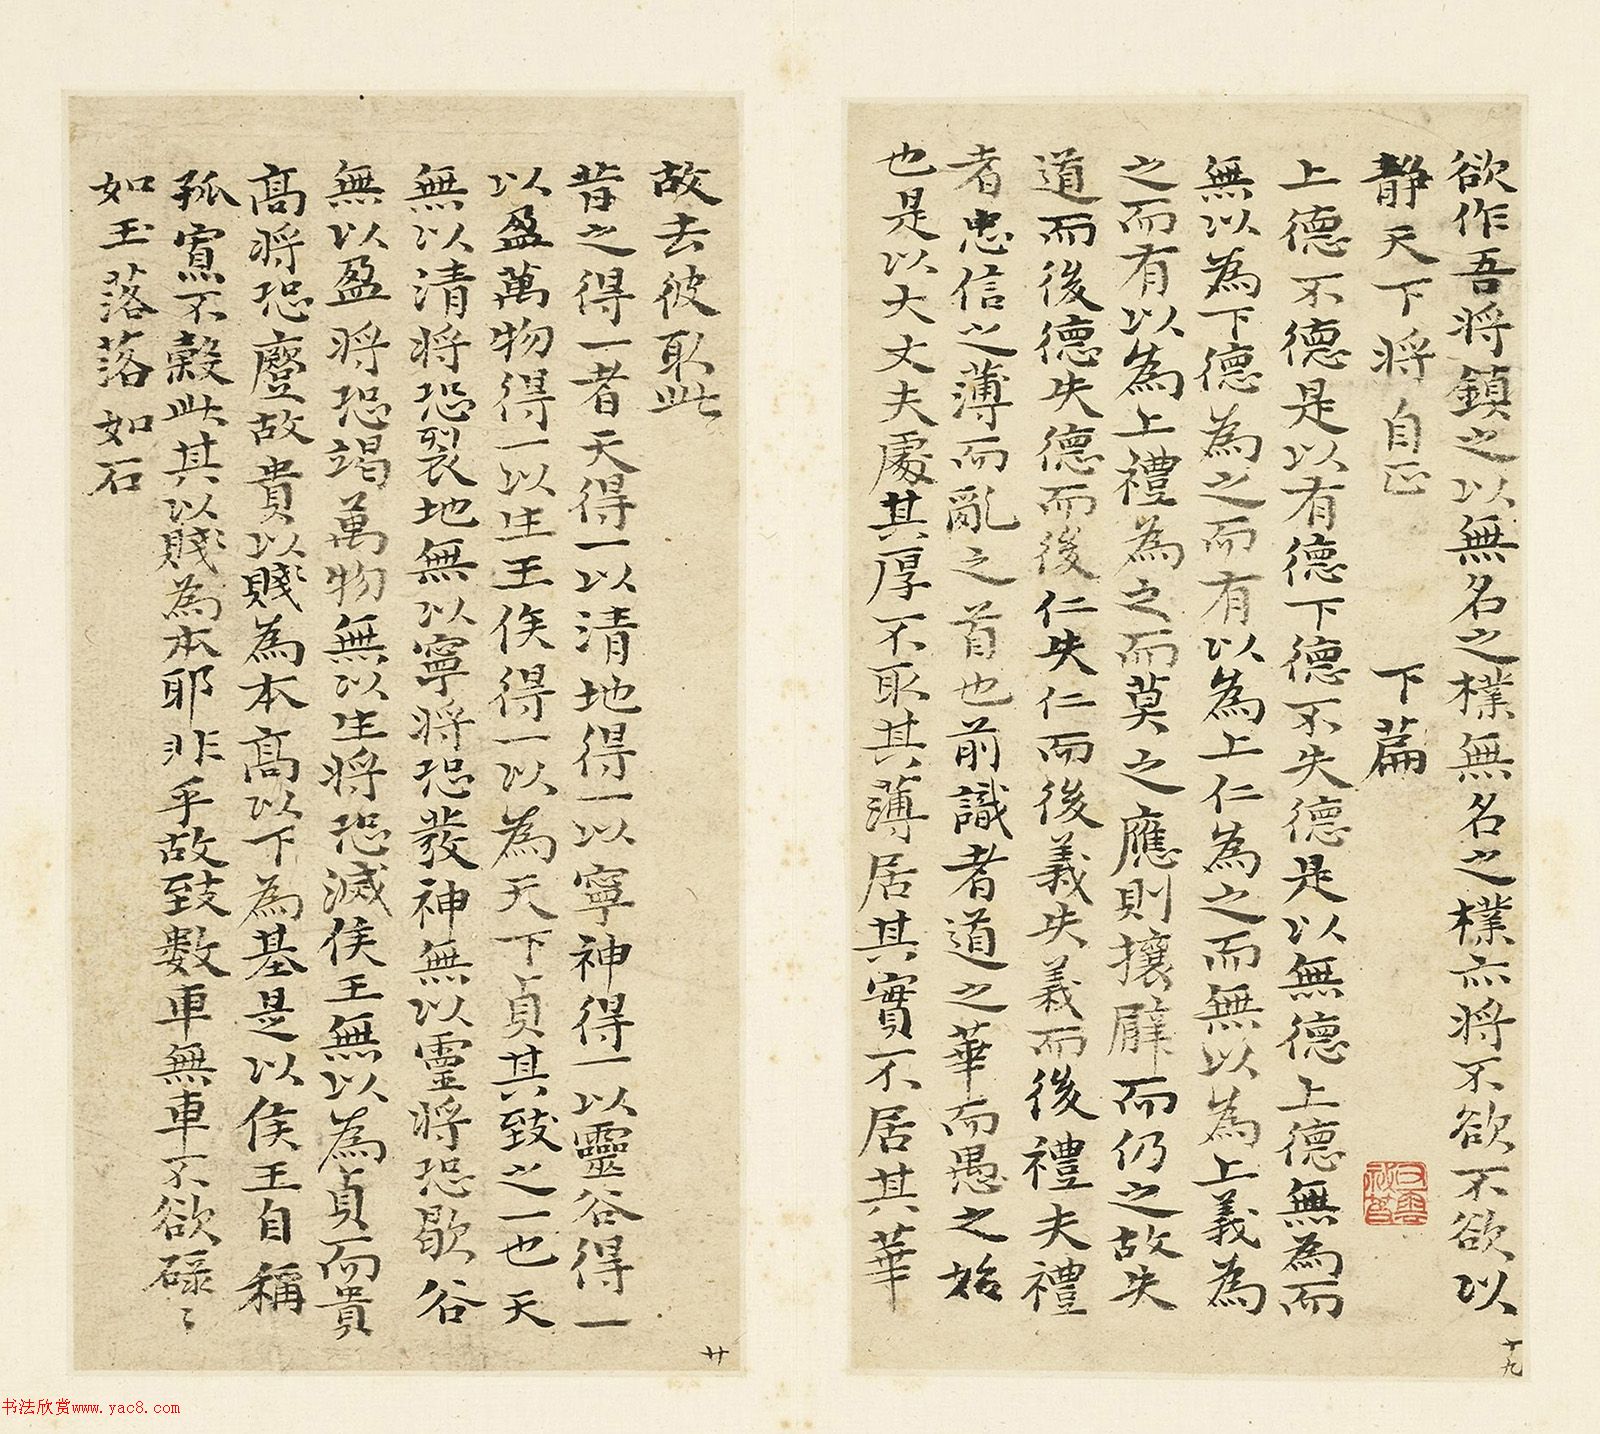 欲作吾将鎮之以無名之樸無名之樸亦将不欲不欲以
静天下将自正 下篇
上德不德是以有德下德不失德是以無德上德無為而
無以為下德為之而有以為上仁為之而無以為上義為
之而有以為上禮為之而莫之應則攘臂而仍之故失
道而後德失德而後仁失仁而後義失義而後禮夫禮
者忠信之薄而亂之首也前識者道之華而愚之始
也是以大丈夫處其厚不取其薄居其實不居其華
十九
故去彼取此
昔之得一者天得一以清地得一以寧神得一以靈谷得一
以盈萬物得一以生王侯得一以為天下貞其致之一也天
無以清将恐裂地無以寧将恐發神無以靈将恐歇谷
無以盈将恐竭萬物無以生将恐滅侯王無以為貞而貴
高将恐蹷故貴以賤為本高以下為基是以侯王自稱
孤寡不穀此其以賤為本耶非乎故致數車無車不欲碌〻
如玉落落如石
廿
书法欣赏www.yac8.com